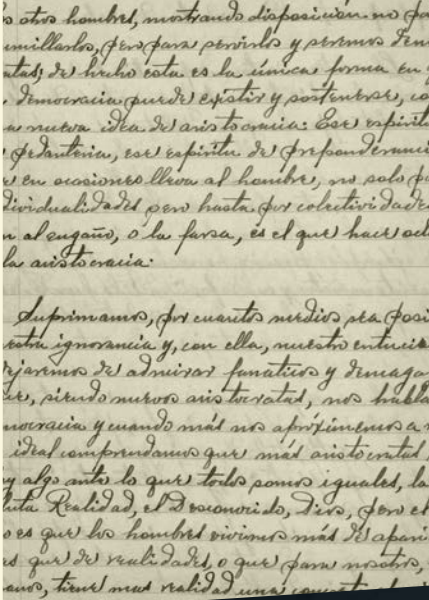 s otros hombres, mostrando disposición no pa
umillarlos, pero para servirlos y seremos dem
atas; de hecho esta es la única forma en q
democracia puede existir y sostenerse, co
a nueva idea de aristocracia: Ese espírit
pedanteria, ese espíritu de preponderanc
e en ocasiones lleva al hombre, no solo po
dividualidades pero hasta por colectividade
n al engaño, o la farsa, es el que hace od
la aristocracia.
Suprimamos, por cuantos medios sea posi
estra ignorancia y, con ella, nuestro
ejaremos de admirar fanáticos y demago
ue, siendo nuevos aristócratas, nos habla
mocracia y cuando más nos apróximemos a
ideal comprendamos que más aristocratas
y algo ante lo que todos somos iguales, la
luta Realidad, el Desconocido, Dios, pero el
o es que los hombres vivimos más de apari
as que de realidades, o que para nosotros,
anos, tiene mas realidad una